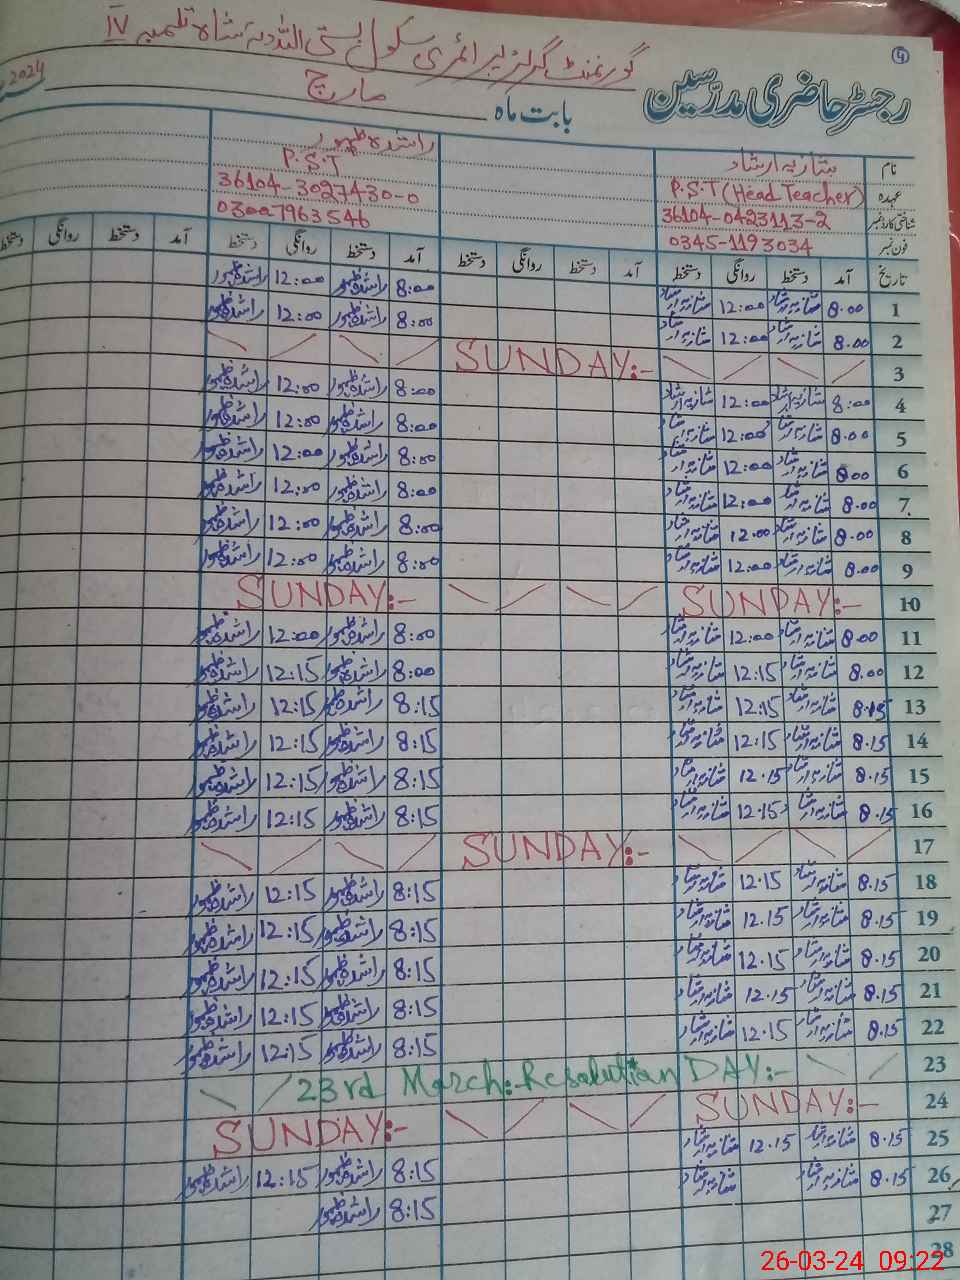 گورنمنٹ گرلز پرائمری سکول بستی اللہ دتہ شاہ تلمبہ IV
4
رجسٹر حاضری مدرسین
بابت ماہ مارچ 2024
نام شازیہ ارشاد راشدہ ظہور
عہدہ P.S.T (Head Teacher) P.S.T
شناختی کارڈ نمبر 36104-0423113-2 36104-3027430-0
فون نمبر 0345-1193034 03007963546
تاریخ آمد دستخط روانگی دستخط آمد دستخط روانگی دستخط آمد دستخط روانگی دستخط آمد دستخط روانگی دستخط
1 8.00 شازیہ ارشاد 12:00 شازیہ ارشاد 8:00 راشدہ ظہور 12:00 راشدہ ظہور
2 8.00 شازیہ ارشاد 12:00 شازیہ ارشاد 8:00 راشدہ ظہور 12:00 راشدہ ظہور
3 SUNDAY:-
4 8:00 شازیہ ارشاد 12:00 شازیہ ارشاد 8:00 راشدہ ظہور 12:00 راشدہ ظہور
5 8.00 شازیہ ارشاد 12:00 شازیہ ارشاد 8:00 راشدہ ظہور 12:00 راشدہ ظہور
6 8.00 شازیہ ارشاد 12:00 شازیہ ارشاد 8:00 راشدہ ظہور 12:00 راشدہ ظہور
7 8.00 شازیہ ارشاد 12:00 شازیہ ارشاد 8:00 راشدہ ظہور 12:00 راشدہ ظہور
8 8.00 شازیہ ارشاد 12.00 شازیہ ارشاد 8:00 راشدہ ظہور 12:00 راشدہ ظہور
9 8.00 شازیہ ارشاد 12:00 شازیہ ارشاد 8:00 راشدہ ظہور 12:00 راشدہ ظہور
10 SUNDAY:- SUNDAY:-
11 8.00 شازیہ ارشاد 12:00 شازیہ ارشاد 8:00 راشدہ ظہور 12:00 راشدہ ظہور
12 8.00 شازیہ ارشاد 12.15 شازیہ ارشاد 8:00 راشدہ ظہور 12:15 راشدہ ظہور
13 8.15 شازیہ ارشاد 12.15 شازیہ ارشاد 8:15 راشدہ ظہور 12:15 راشدہ ظہور
14 8.15 شازیہ ارشاد 12.15 شازیہ ارشاد 8:15 راشدہ ظہور 12:15 راشدہ ظہور
15 8.15 شازیہ ارشاد 12.15 شازیہ ارشاد 8:15 راشدہ ظہور 12:15 راشدہ ظہور
16 8.15 شازیہ ارشاد 12.15 شازیہ ارشاد 8:15 راشدہ ظہور 12:15 راشدہ ظہور
17 SUNDAY:-
18 8.15 شازیہ ارشاد 12.15 شازیہ ارشاد 8:15 راشدہ ظہور 12:15 راشدہ ظہور
19 8.15 شازیہ ارشاد 12.15 شازیہ ارشاد 8:15 راشدہ ظہور 12:15 راشدہ ظہور
20 8.15 شازیہ ارشاد 12.15 شازیہ ارشاد 8:15 راشدہ ظہور 12:15 راشدہ ظہور
21 8.15 شازیہ ارشاد 12.15 شازیہ ارشاد 8:15 راشدہ ظہور 12:15 راشدہ ظہور
22 8.15 شازیہ ارشاد 12.15 شازیہ ارشاد 8:15 راشدہ ظہور 12:15 راشدہ ظہور
23 23rd March:Resolution DAY:-
24 SUNDAY:- SUNDAY:-
25 8.15 شازیہ ارشاد 12.15 شازیہ ارشاد 8:15 راشدہ ظہور 12:15 راشدہ ظہور
26 8.15 شازیہ ارشاد شازیہ ارشاد 8:15 راشدہ ظہور
27
28
26-03-24 09:22